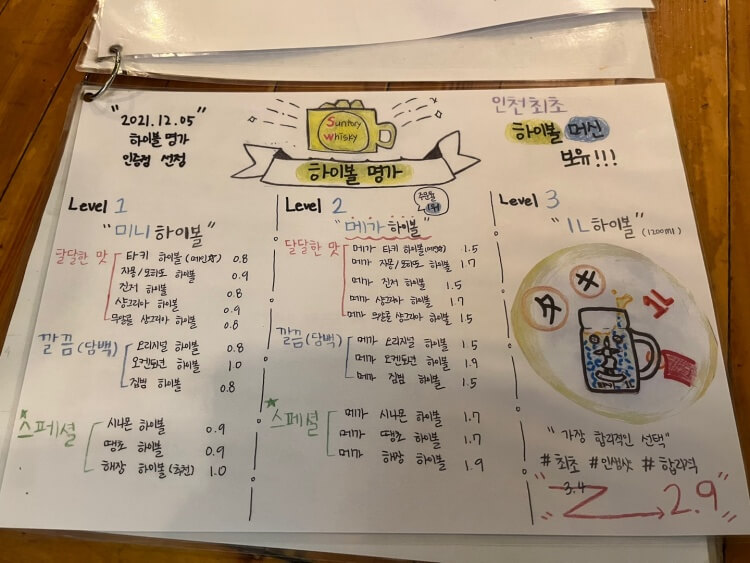 "2021.12.05"
하이볼 명가
인증점 선정
Suntory
Whisky
하이볼 명가
인천최초
하이볼 머신
보유!!!
Level 1
"미니하이볼"
달달한 맛
타키 하이볼 (메인) 0.8
자몽/토마토 하이볼 0.9
진저 하이볼 0.8
샹그리아 하이볼 0.9
무알콜 샹그리아 하이볼 0.8
깔끔(담백)
오리지널 하이볼 0.8
오켄토션 하이볼 1.0
짐빔 하이볼 0.8
스페셜
시나몬 하이볼 0.9
땡초 하이볼 0.9
해장 하이볼(추천) 1.0
Level 2
주문율
1위
"메가 하이볼"
달달한 맛
메가 타키 하이볼 1.5
메가 자몽/토마토 하이볼 1.7
메가 진저 하이볼 1.5
메가 샹그리아 하이볼 1.7
메가 무알콜 샹그리아 하이볼 1.5
깔끔(담백)
메가 오리지널 하이볼 1.5
메가 오켄토션 하이볼 1.9
메가 짐빔 하이볼 1.5
스페셜
메가 시나몬 하이볼 1.7
메가 땡초 하이볼 1.7
메가 해장 하이볼 1.9
Level 3
"1L하이볼" (1200ml)
1L
"가장 합리적인 선택"
#최초 #인생샷 #합리적
3.4
"2.9"